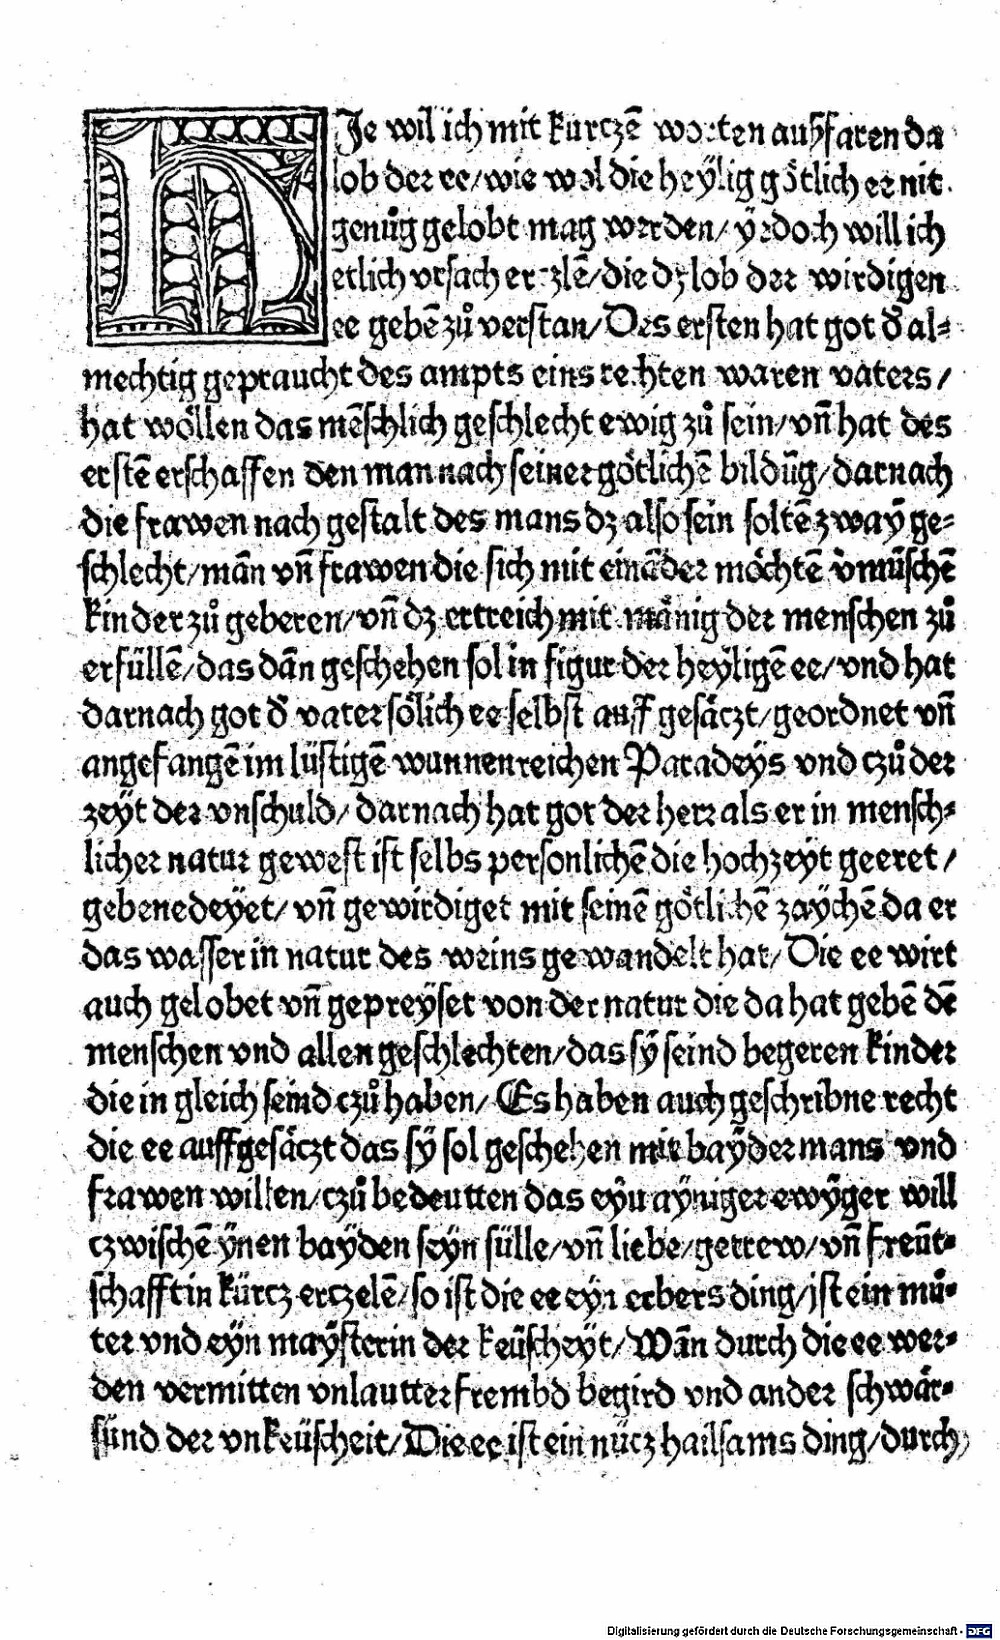 HJe wil ich mit kurtzē worten auſzfaren da
lob der ee/wie wol die heÿlig götlich er nit
genůg gelobt mag werden/ yedoch will ich
etlich vrſach erczlē/die dz lob der wirdigen
ee gebē zů verſtan/Des erſten hat got d̕ al⸗
mechtig gepraucht des ampts eins rechten waren vaters/
hat wöllen das mēſchlich geſchlecht ewig zů ſein/vn̄ hat des
erſtē erſchaffen den man nach ſeiner götlichē bildūg/darnach
die frawen nach geſtalt des mans dz alſo ſein ſoltē zwaÿ ge⸗
ſchlecht/mān vn̄ frawen die ſich mit eināder möchtē v̕müſchē
kinder zů geberen/vn̄ dz ertreich mit mänig der menſchen zů
erfüllē/das dān geſchehen ſol in figur der heÿligē ee/vnd hat
darnach got d̕ vater ſölich ee ſelbſt auff geſäczt/geordnet vn̄
angefangē im lüſtigē wunnenreichen Paradeÿs vnd czů der
zeÿt der vnſchuld/darnach hat got der herr als er in menſch⸗
licher natur geweſt iſt ſelbs perſonlichē die hochzeÿt geeret/
gebenedeÿet/vn̄ gewirdiget mit ſeinē götlichē zaÿchē da er
das waſſer in natur des weins gewandelt hat/Die ee wirt
auch gelobet vn̄ gepreÿſet von der natur die da hat gebē dē
menſchen vnd allen geſchlechten/das ſÿ ſeind begeren kinder
die in gleich ſeind czů haben/Es haben auch geſchribne recht
die ee auffgeſäczt das ſÿ ſol geſchehen mit baÿder mans vnd
frawen willen/czů bedeutten das eÿn aÿniger ewÿger will
czwiſchē ÿnen baÿden ſeÿn ſülle/vn̄ liebe/getrew/vn̄ freūt⸗
ſchafft in kürcz erczelē/ſo iſt die ee eyn erbers ding/iſt ein mů⸗
ter vnd eÿn maÿſterin der keüſcheÿt/Wān durch die ee wer⸗
den vermitten vnlautter frembd begird vnd ander ſchwär⸗
ſünd der vnkeüſcheit/Die ee iſt ein nücz hailſams ding/durch
Digitalisierung gefördert durch die Deutsche Forschungsgemeinschaft - DFG